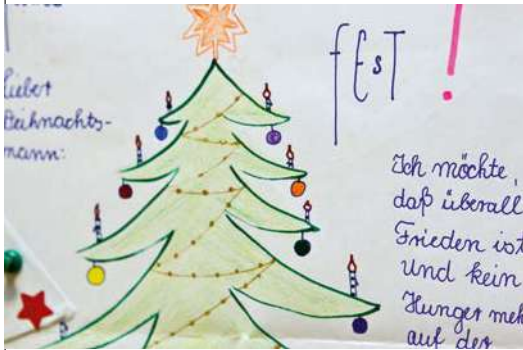 fEsT !
Lieber
Weihnachts-
mann:
Ich möchte,
daß überall
Frieden ist
Und kein
Hunger meh
auf der